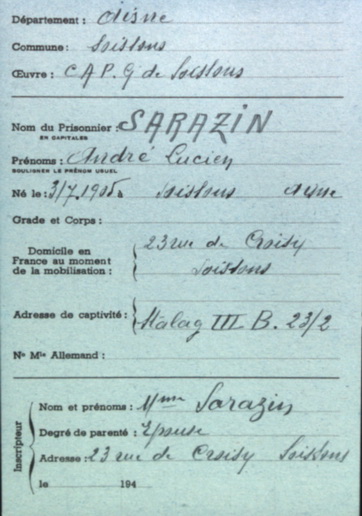 Département: Aisne
Commune: Soissons
Œuvre: C A P. G de Soissons
Nom du Prisonnier: SARAZIN
EN CAPITALES
Prénoms: André Lucien
SOULIGNER LE PRÉNOM USUEL
Né le: 3/7.1905 à Soissons Aisne
Grade et Corps:
Domicile en
France au moment
de la mobilisation:
23 rue de Croisy
Soissons
Adresse de captivité: Stalag III B. 23/2
No Mle Allemand:
Inscripteur
Nom et prénoms: Mme Sarazin
Degré de parenté: Epouse
Adresse: 23 rue de Croisy Soissons
le 194